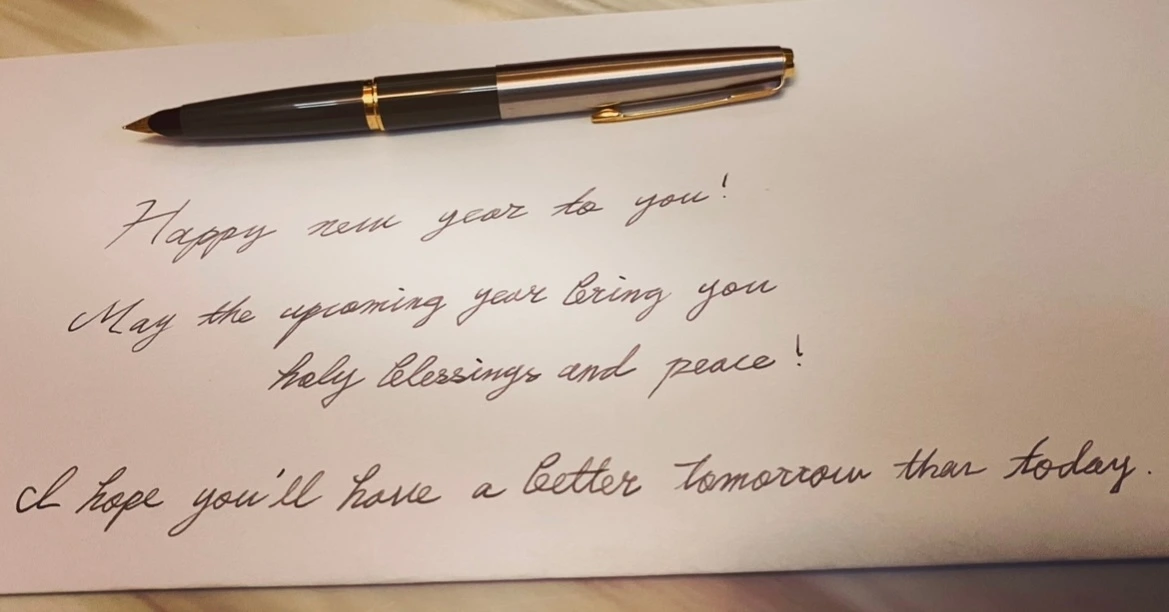 Happy new year to you!
May the upcoming year bring you
holy blessings and peace!
I hope you'll have a better tomorrow than today.